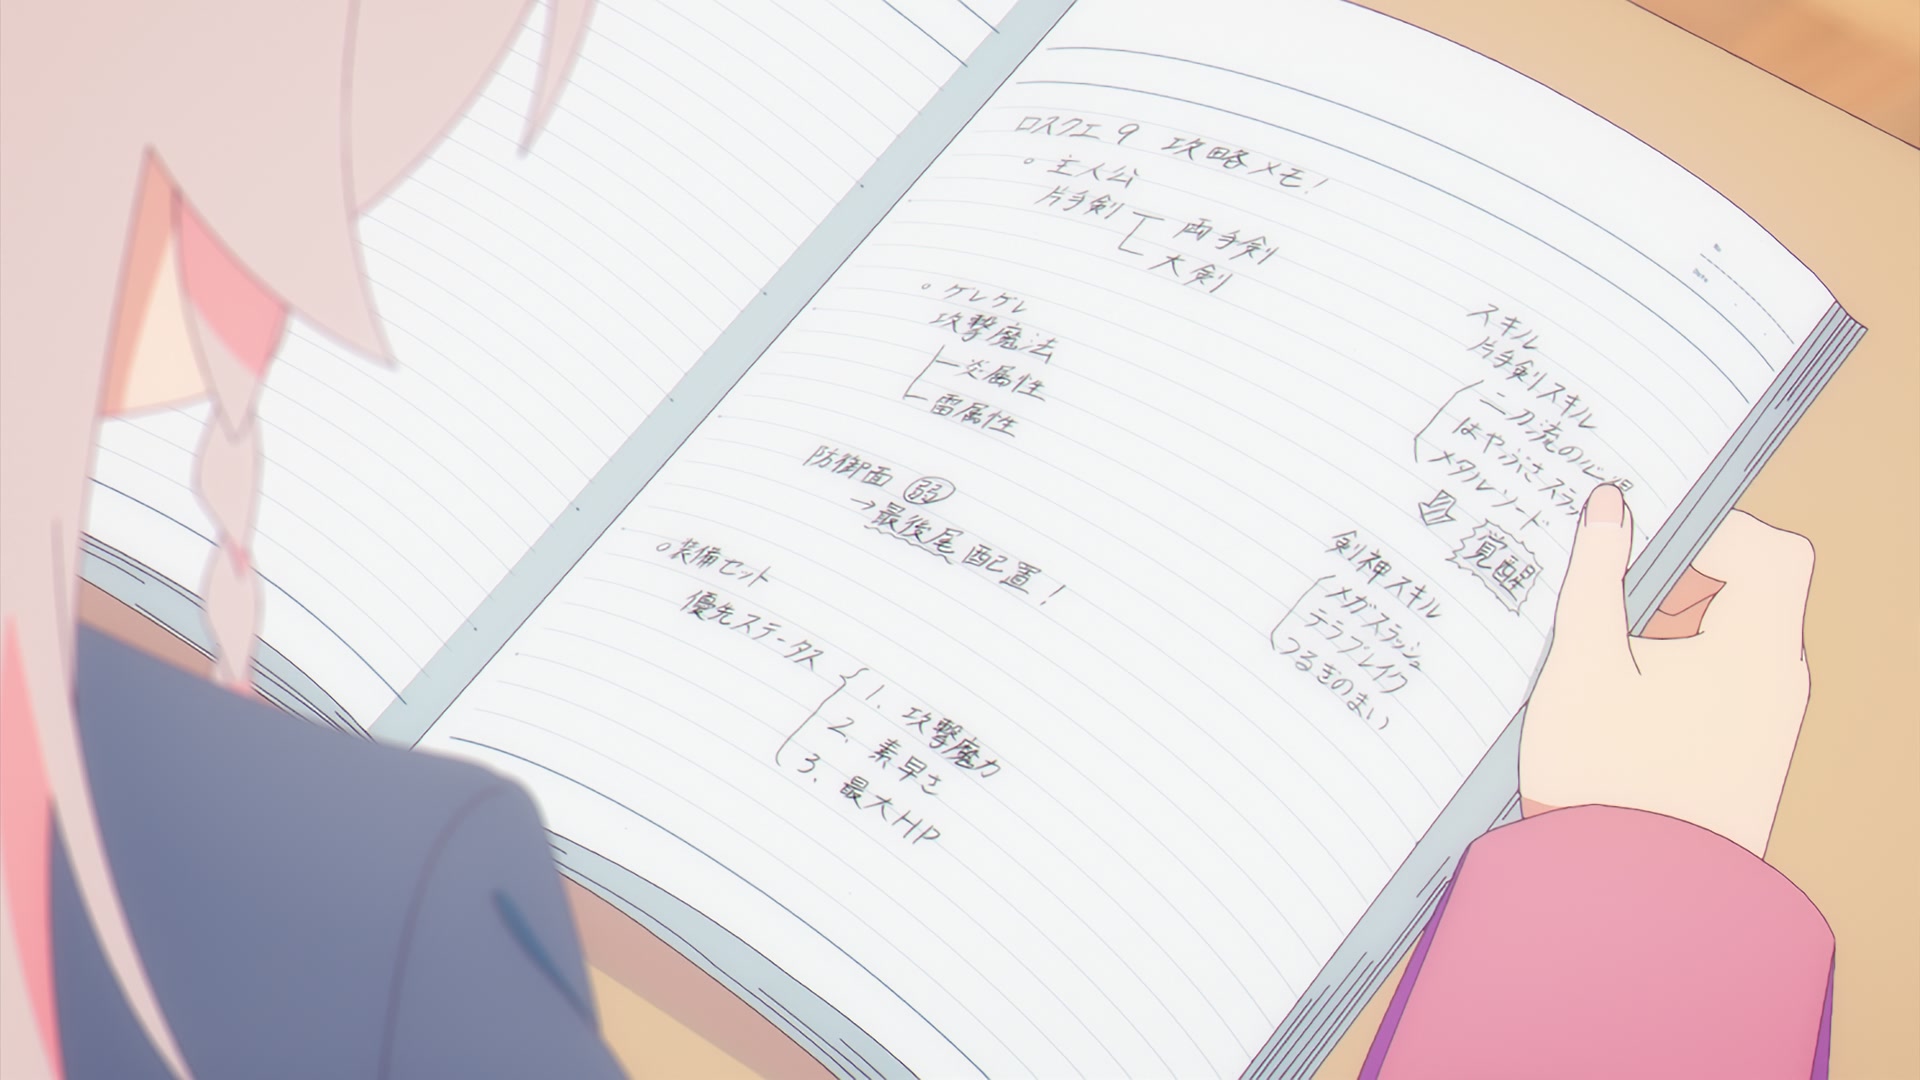 ロスクエ9 攻略メモ!
○主人公
片手剣
両手剣
大剣
○ゲレゲレ
攻撃魔法
炎属性
雷属性
防御面 弱
→最後尾配置!
○装備セット
優先ステータス
1. 攻撃魔力
2. 素早さ
3. 最大HP
スキル
片手剣スキル
二刀流の心得
はやぶさスラッ
メタルソード
覚醒
剣神スキル
メガスラッシュ
テラブレイク
つるぎのまい
No.
Date